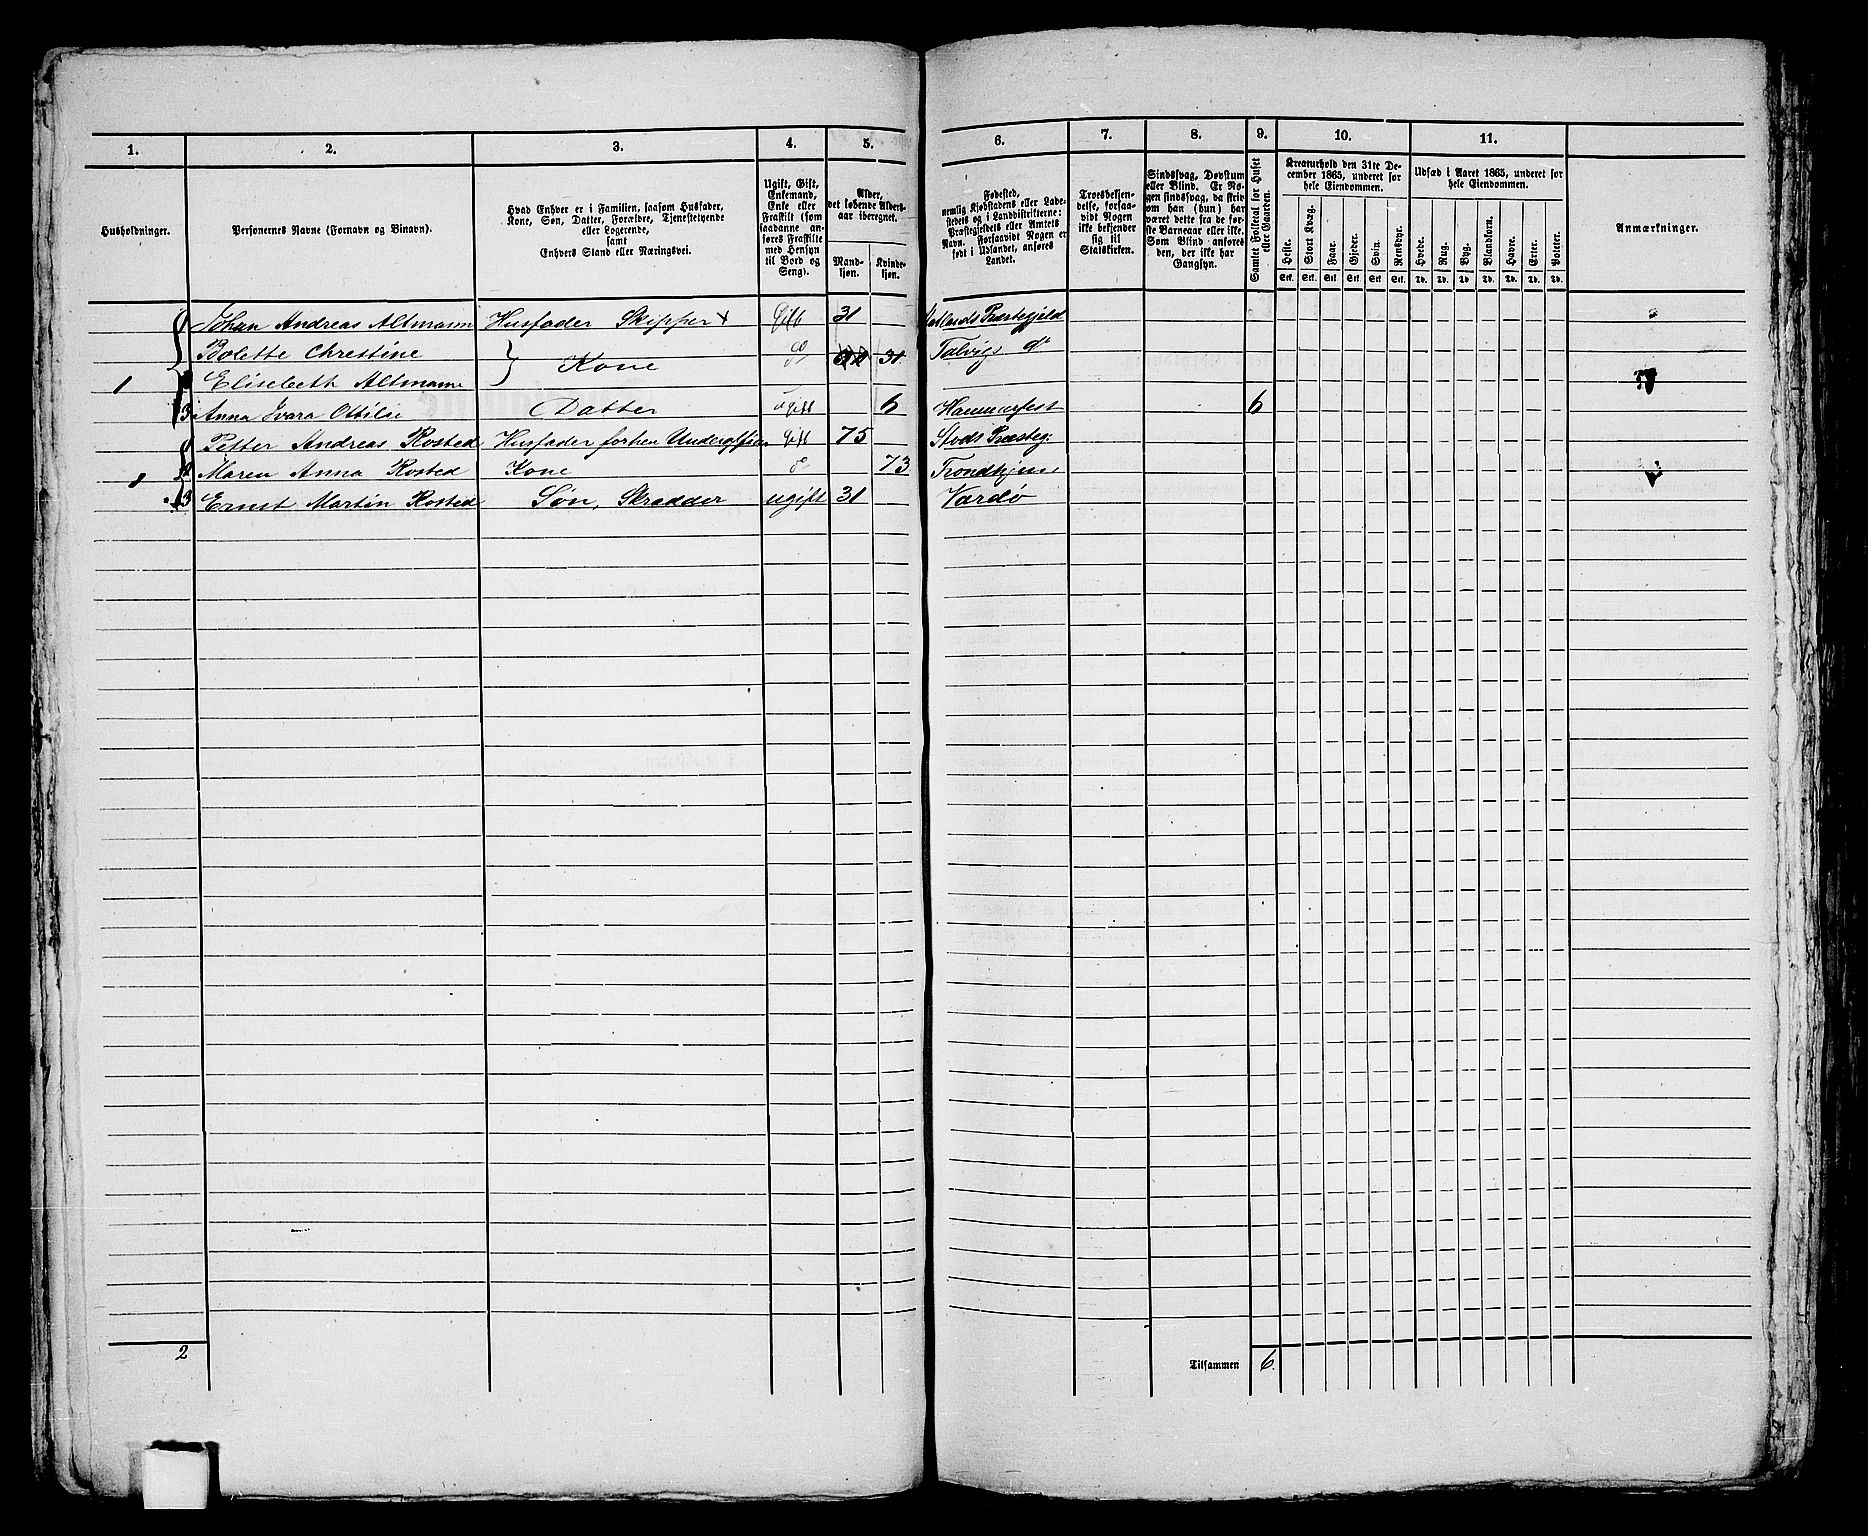 1. 2. 3. 4. 5. 6. 7. 8. 9. 10. 11.
Husholdninger.
Personernes Navne (Fornavn og Binavn).
Hvad Enhver er i Familien, saasom Husfader,
Kone, Søn, Datter, Forældre, Tjenestetyende
eller Logerende,
samt
Enhvers Stand eller Næringsvei.
Ugift, Gift,
Enkemand,
Enke eller
Fraskilt (som
saadanne an-
føres Fraskilte
med Hensyn
til Bord og
Seng).
Alder,
det løbende Alders-
aar iberegnet.
Mand-
kjøn.
Kvinde-
kjøn.
Fødested,
nemlig Kjøbstadens eller Lade-
stedets og i Landdistrikterne:
Præstegjeldets eller Amtets
Navn. Forsaavidt Nogen er
født i Udlandet, anføres
Landet.
Troesbekjen-
delse, forsaa-
vidt Nogen
ikke bekjender
sig til
Statskirken.
Sindssvag, Døvstum
eller Blind. Er No-
gen sindssvag, da skriv
om han (hun) har
været dette fra de før-
ste Barneaar eller ikke.
Som Blind anføres
den, der ikke har
Gangsyn.
Samlet Folketal for Huset
eller Gaarden.
Kreaturhold den 31te De-
cember 1865, underet for
hele Eiendommen.
Heste. Stort Kvæg. Faar. Gjeder. Svin. Rensdyr.
Stk. Stk. Stk. Stk. Stk. Stk.
Udsæd i Aaret 1865, underet for
hele Eiendommen.
Hvede. Rug. Byg. Blandkorn. Havre. Erter. Poteter.
Td. Td. Td. Td. Td. Td. Td.
Anmærkninger.
Johan Andreas Altmann Husfader Skipper Gift 31 Præstegjeld
Bolette Chrestine Kone do 31 Talvigs do
1 Elisebeth Altmann
3 Anna Ivara Ottilie Datter Ugift 6 Hammerfest 6
1 Petter Andreas Rosted Husfader forhen Gift 75 Stods Præsteg:
1 2 Maren Anna Rosted Kone do 73 Trondhjem
3 Ernst Martin Rosted Søn, Skrædder ugift 31 Vardö
2 Tilsammen 6.